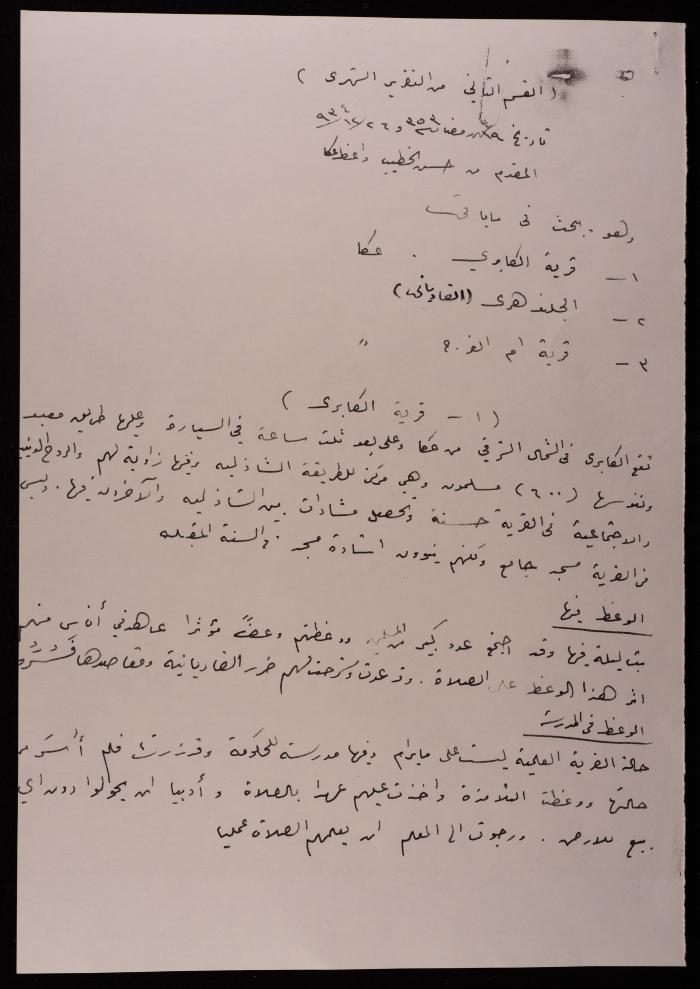 ( القسم الثاني من التقرير الشهرى )
تاريخ ١٩ رمضان ٣٥٣ و ٢٦/١٢/٩٣٤
المقدم من حسن الخطيب واعظ عكا
وهو يبحث فى ما يأتى
١ - قرية الكابري . عكا
٢ - الجلندهرى (القاديانى)
٣ - قرية ام الفرج "
( ١ - قرية الكابرى )
تقع الكابرى فى الشمال الشرقي من عكا وعلى بعد ثلث ساعة في السيارة وعليها طريق معبد
ونفوسها (٦٠٠) مسلمون وهي مركز للطريقة الشاذليه وفيها زاوية لهم والروح الدينية
والاجتماعية فى القرية حسنة وتحصل مشادات بين الشاذليه والآخرون فيها. وليس
في القرية مسجد جامع ولكنهم ينوون اشادة مسجد في السنة المقبله
الوعظ فيها
بت ليلة فيها وقد اجتمع عدد كبير من المسلمين ووعظتهم وعظاً مؤثرا عاهدني أناس منهم
اثر هذا الوعظ على الصلاة. وقد عدت وشرحت لهم ضرر القاديانية ومقاصدها فَسُرُّوا
الوعظ في المدرسة
حالة القرية العلمية ليست على مايرام وفيها مدرسة للحكومة وقد زرت فلم أُسَر من
حالتها ووعظت التلامذة واخذت عليهم عهدا بالصلاة و أدبيا ان يحولوا دون اي
بيع للارض. ورجوت الى المعلم ان يعلمهم الصلاة عمليا